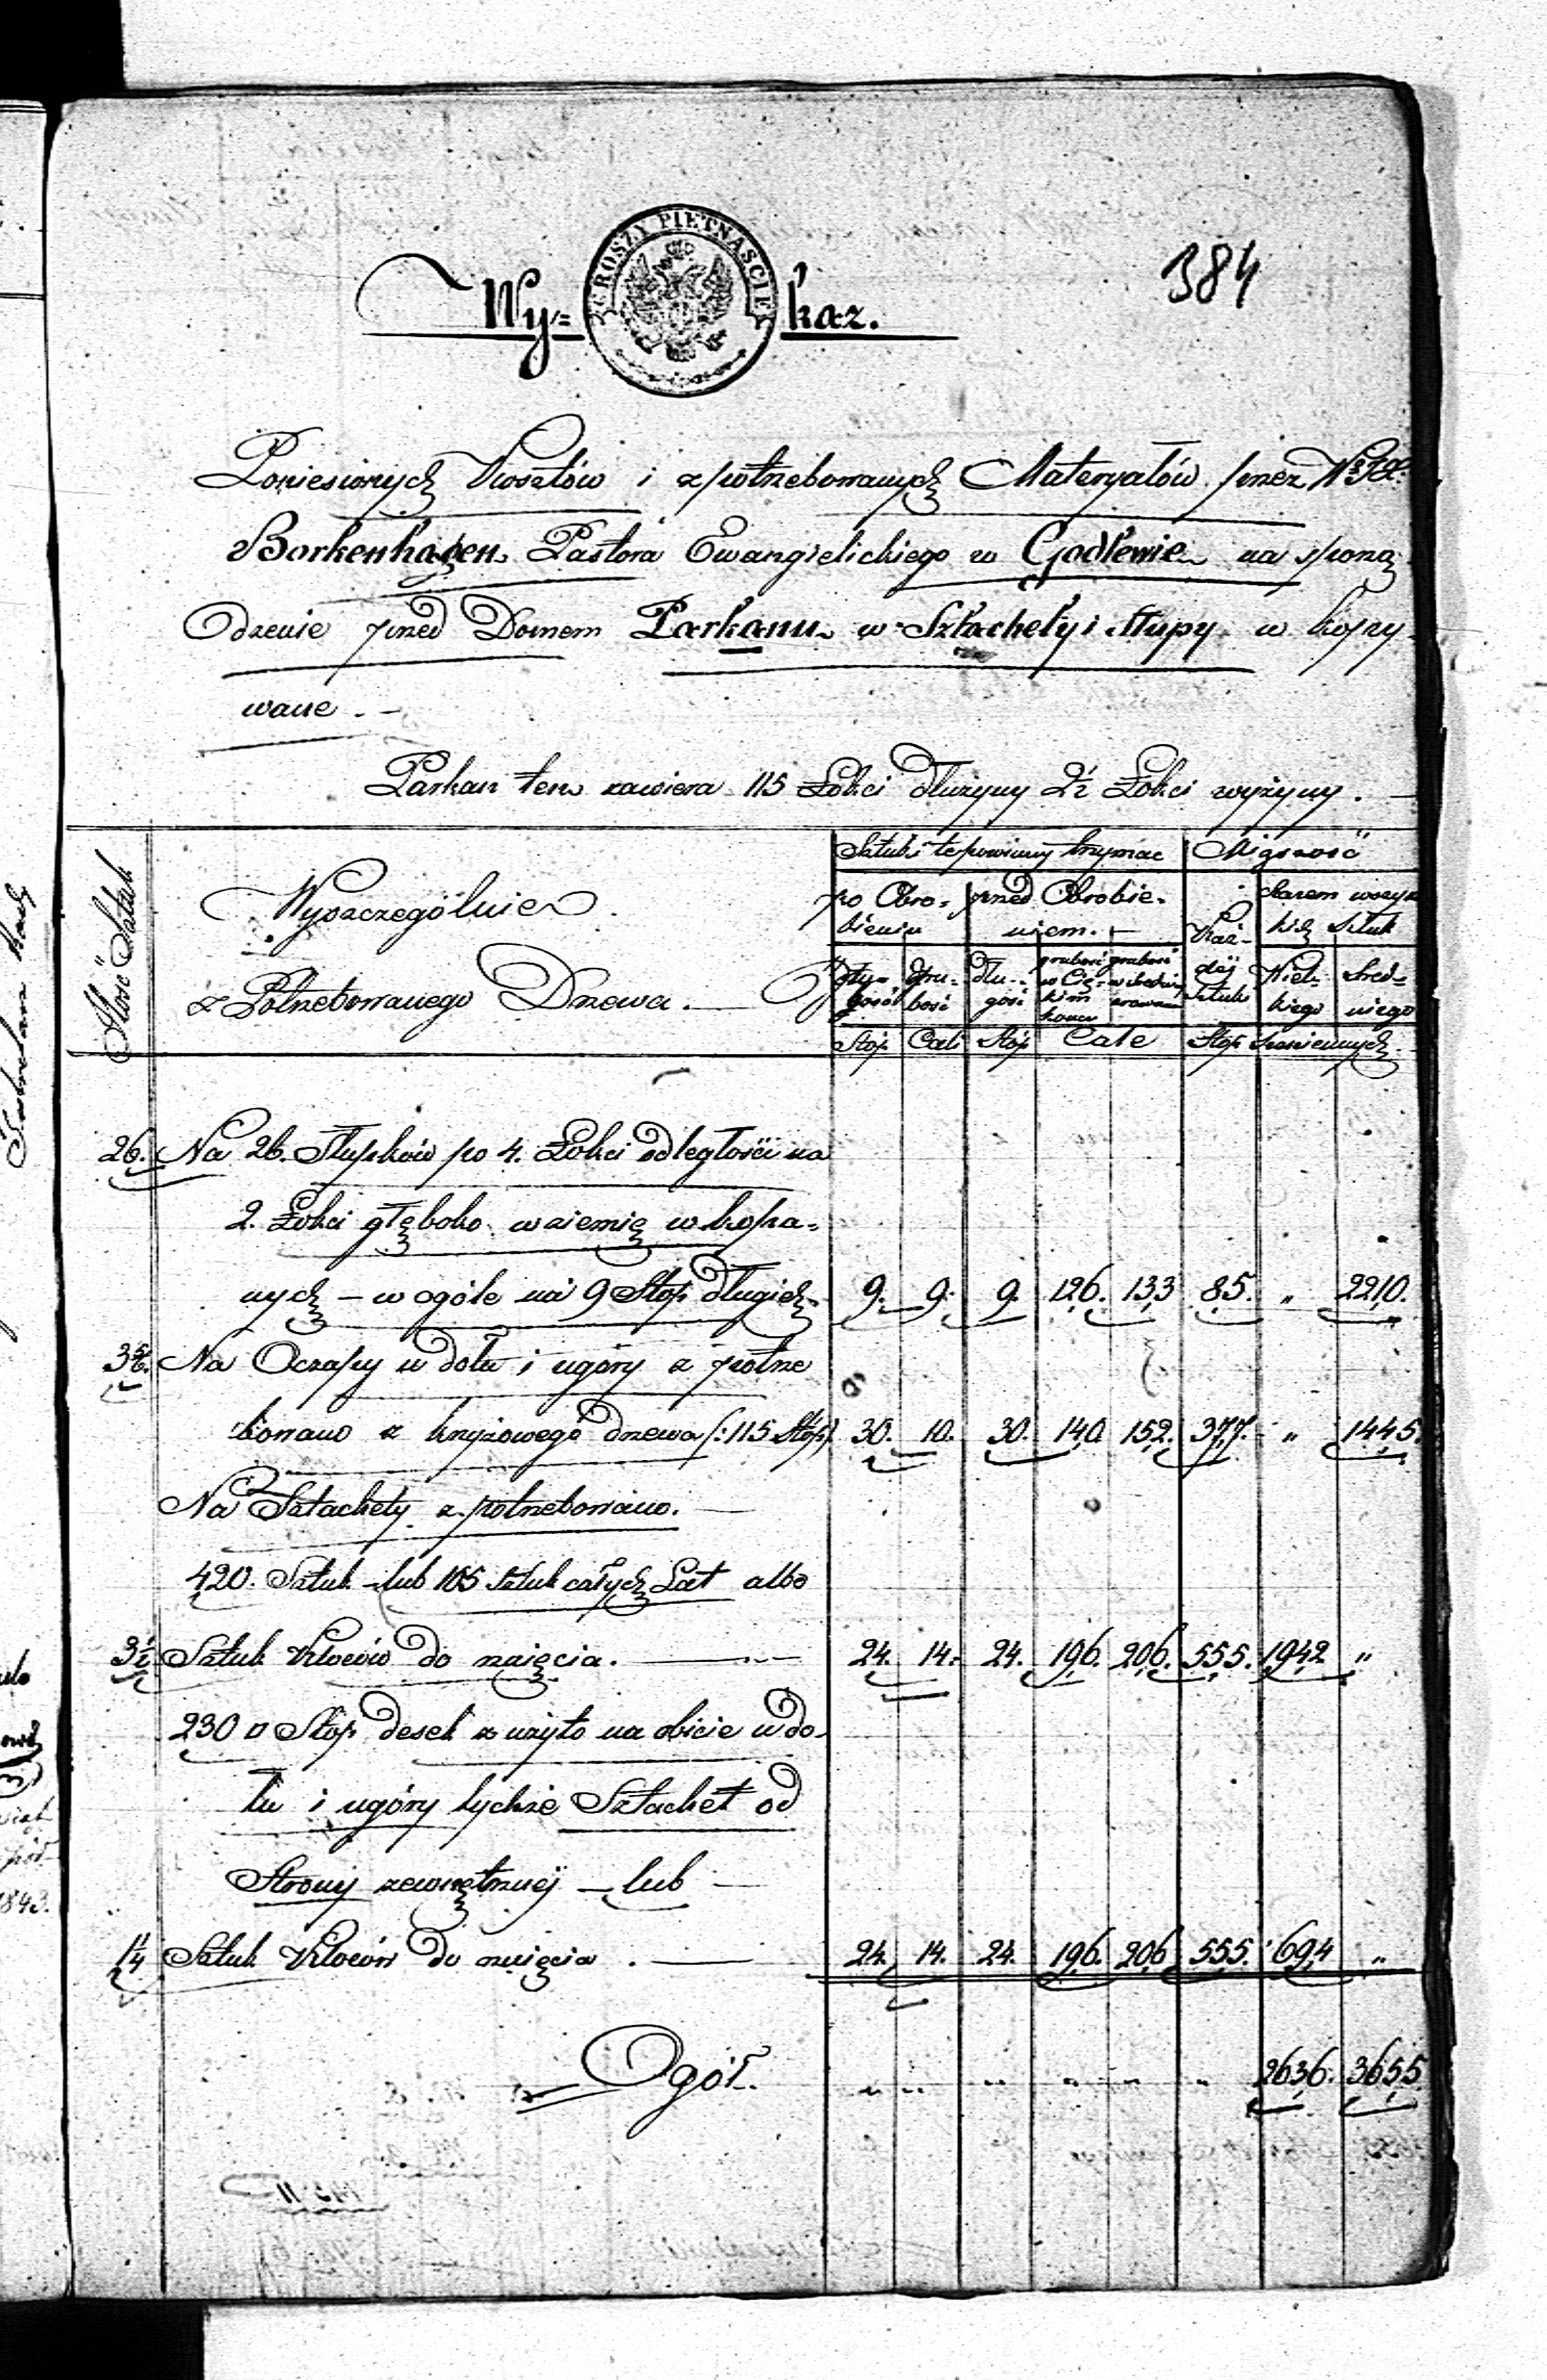 384
GROSZY PIETNAŚCIE
Wy= kaz.
Poniesionych Kosztów i zpotrzebowanych Materyałów przez
Borkenhagen Pastora Ewangielickiego w Godlewie na sporzą
dzenie przed Domem Parkanu w Sztachety i słupy w kopy
wane. –
Parkan ten zawiera 115 Łokci dłużyny 2½ Łokci wyżyny.
Ilość Sztuk
Wyszczególnie
z Potrzebowanego Drzewa. —
Sztuki te powinny trzymać
Miąszość
po Obro- przed Obrobie-
bieniu niem. –
Każ-
dej
Sztuki
Razem wszyst
kich Sztuk
Dłu- Gru- Dłu-
gość bość gość
grubość
w Cię-
kim
końcu
grubość
w średnicy
Wiel-
kiego
Śred-
niego
Stóp Cali Stóp Cale Stóp Sześciennych
26. Na 26. Słupków po 4. Łokci odległości na
2. Łokci głęboko w ziemię w kopa=
nych – w ogóle na 9 Stóp długich 9. 9. 9. 12,6. 13,3 8,5. " 221,0.
Na Oczapy u dołu i ugóry z potrze
bowano z krzyżowego drzewa (:115 Stóp) 30. 10. 30. 14,0 15,2. 37,7. " 144,5.
Na Sztachety z potrzebowano. —
420. Sztuk – lub 105 sztuk całych Łat albo
3½ Sztuk Kloców do rznięcia. — 24. 14. 24. 19,6. 20,6. 55,5. 194,2 "
230 □ Stóp desek z użyto na obicie u do-
łu i ugóry tychże Sztachet od
Strony zewnętrznej – lub –
1¼ Sztuk Kloców do rznięcia. — 24. 14. 24. 19,6. 20,6 55,5. 69,4 "
Ogół. " " " " " " 263,6. 365,5
1843.